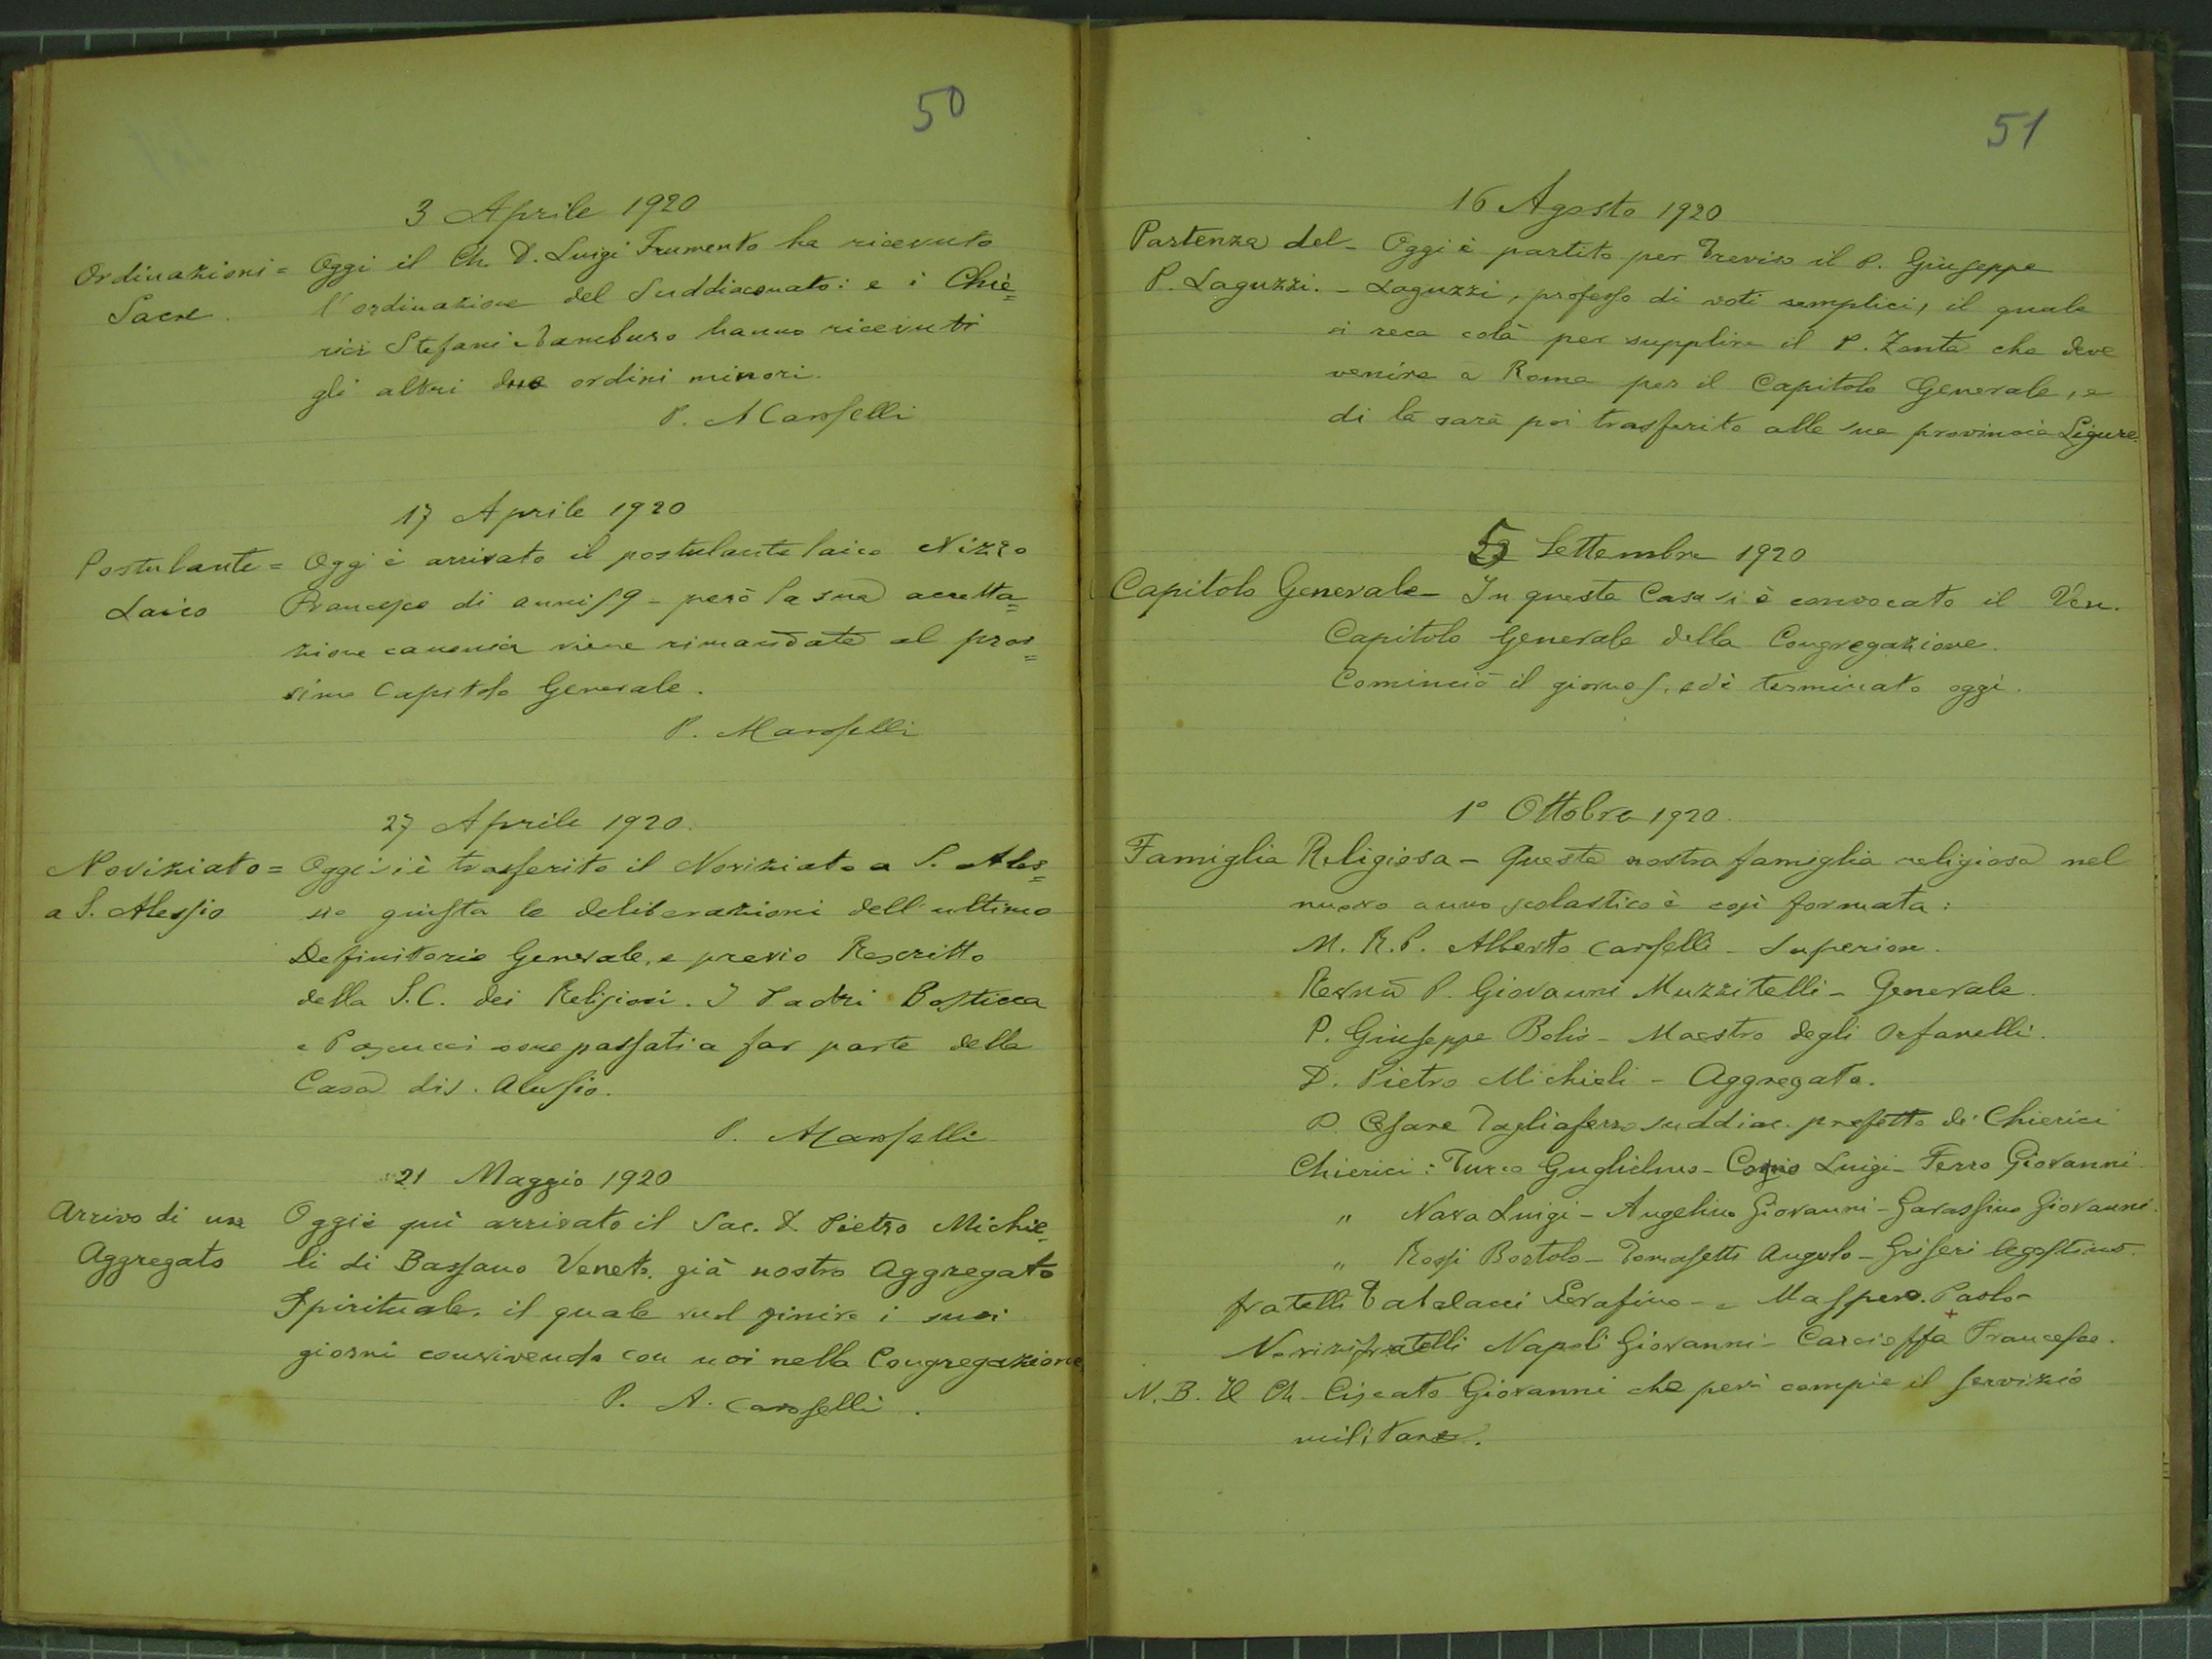 50
3 Aprile 1920
Ordinazioni = Oggi il Ch. D. Luigi Frumento ha ricevuto
Sacre. l'ordinazione del Suddiaconato: e i Chie=
rici Stefani e Tamburo hanno ricevuti
gli altri due ordini minori.
P. A Carosselli
17 Aprile 1920
Postulante = Oggi è arrivato il postulante laico Nizzo
Laico Francesco di anni 59 - però la sua accetta=
zione canonica viene rimandata al pros=
simo Capitolo Generale.
P. A Carosselli
27 Aprile 1920.
Noviziato = Oggi si è trasferito il Noviziato a S. Ales=
a S. Alessio sio giusta le deliberazioni dell'ultimo
Definitorio Generale, e previo Rescritto
della S.C. dei Religiosi. I Padri Bosticca
e Pascucci sono passati a far parte della
Casa di S. Alessio.
P. A Carosselli
21 Maggio 1920
Arrivo di un Oggi è qui arrivato il Sac. D. Pietro Michie=
Aggregato li di Bassano Veneto, già nostro Aggregato
Spirituale, il quale vuol finire i suoi
giorni convivendo con noi nella Congregazione
P. A. Carosselli.
51
16 Agosto 1920
Partenza del - Oggi è partito per Treviso il P. Giuseppe
P. Laguzzi. - Laguzzi, professo di voti semplici, il quale
si reca colà per supplire il P. Zonta che deve
venire a Roma per il Capitolo Generale, e
di là sarà poi trasferito alla sua provincia Ligure.
5 Settembre 1920
Capitolo Generale - In questa Casa si è convocato il Ven.
Capitolo Generale della Congregazione.
Cominciò il giorno 5. ed è terminato oggi.
1° Ottobre 1920.
Famiglia Religiosa - Questa nostra famiglia religiosa nel
nuovo anno scolastico è così formata:
M. R. P. Alberto Carosselli - Superiore.
Revmo P. Giovanni Muzzitelli - Generale.
P. Giuseppe Bolis - Maestro degli Orfanelli.
D. Pietro Michieli - Aggregato.
D. Cesare Tagliaferro suddiac. prefetto dei Chierici
Chierici: Turco Guglielmo - Luigi - Ferro Giovanni
" Nava Luigi - Angelino Giovanni - Garassino Giovanni.
" Rossi Bortolo - Tomasetti Angelo - Griseri Agostino.
fratelli Catalacci Serafino - e Maspero Paolo -
Novizi fratelli Napoli Giovanni - Carcioffa Francesco.
N.B. Il Ch. Ciscato Giovanni che però compie il servizio
militare.